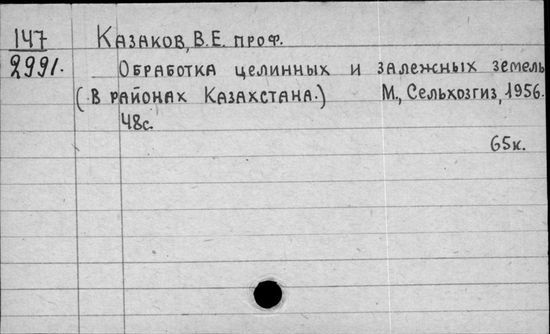 147 Казаков, В.Е. проф.
2991. Обработка целинных и залежных земель
(в районах Казахстана.) М., Сельхозгиз, 1956.
48с.
65к.